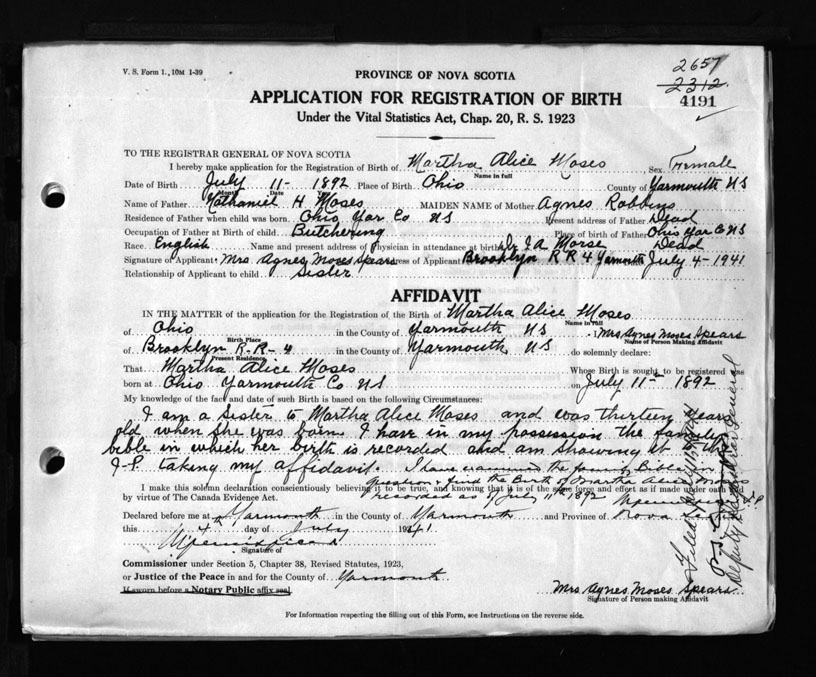 V. S. Form 1., 10M 1-39
2657
2312
4191
PROVINCE OF NOVA SCOTIA
APPLICATION FOR REGISTRATION OF BIRTH
Under the Vital Statistics Act, Chap. 20, R. S. 1923
TO THE REGISTRAR GENERAL OF NOVA SCOTIA
I hereby make application for the Registration of Birth of Martha Alice Moses Sex Female
Name in full
Date of Birth July 11- 1892 Place of Birth Ohio County of Yarmouth NS
Month Date
Name of Father Nathaniel H Moses MAIDEN NAME of Mother Agnes Robbins
Residence of Father when child was born Ohio Yar Co NS Present address of Father Dead
Occupation of Father at Birth of child Butchering Place of birth of Father Ohio Yar Co NS
Race English Name and present address of physician in attendance at birth Dr I A Morse Dead
Signature of Applicant Mrs Agnes Moses Spears Address of Applicant Brooklyn R R 4 Yarmouth July 4-1941
Relationship of Applicant to child Sister
AFFIDAVIT
IN THE MATTER of the application for the Registration of the Birth of Martha Alice Moses
Name in full
of Ohio in the County of Yarmouth NS Mrs Agnes Moses Spears
Birth Place Name of Person Making Affidavit
of Brooklyn R-R-4 in the County of Yarmouth NS do solemnly declare:
Present Residence
That Martha Alice Moses Whose Birth is sought to be registered was
born at Ohio Yarmouth Co NS on July 11th 1892
My knowledge of the fact and date of such Birth is based on the following Circumstances:
I am a Sister to Martha Alice Moses and was thirteen years
old when she was born. I have in my possession the family
bible in which her birth is recorded and am showing it to the
J-P. taking my affidavit. I have examined the family Bible in
question, find the Birth of Martha Alice Moses
I make this solemn declaration conscientiously believing it to be true, and knowing that it is of the same force and effect as if made under oath
recorded as July 11th 1892
by virtue of The Canada Evidence Act.
Declared before me at Yarmouth in the County of Yarmouth and Province of Nova Scotia
this 4th day of July 1941
Signature of
Commissioner under Section 5, Chapter 38, Revised Statutes, 1923,
or Justice of the Peace in and for the County of Yarmouth
If sworn before a Notary Public affix seal
Mrs Agnes Moses Spears
Signature of Person making Affidavit
For Information respecting the filling out of this Form, see Instructions on the reverse side.
Filed
Deputy Registrar General